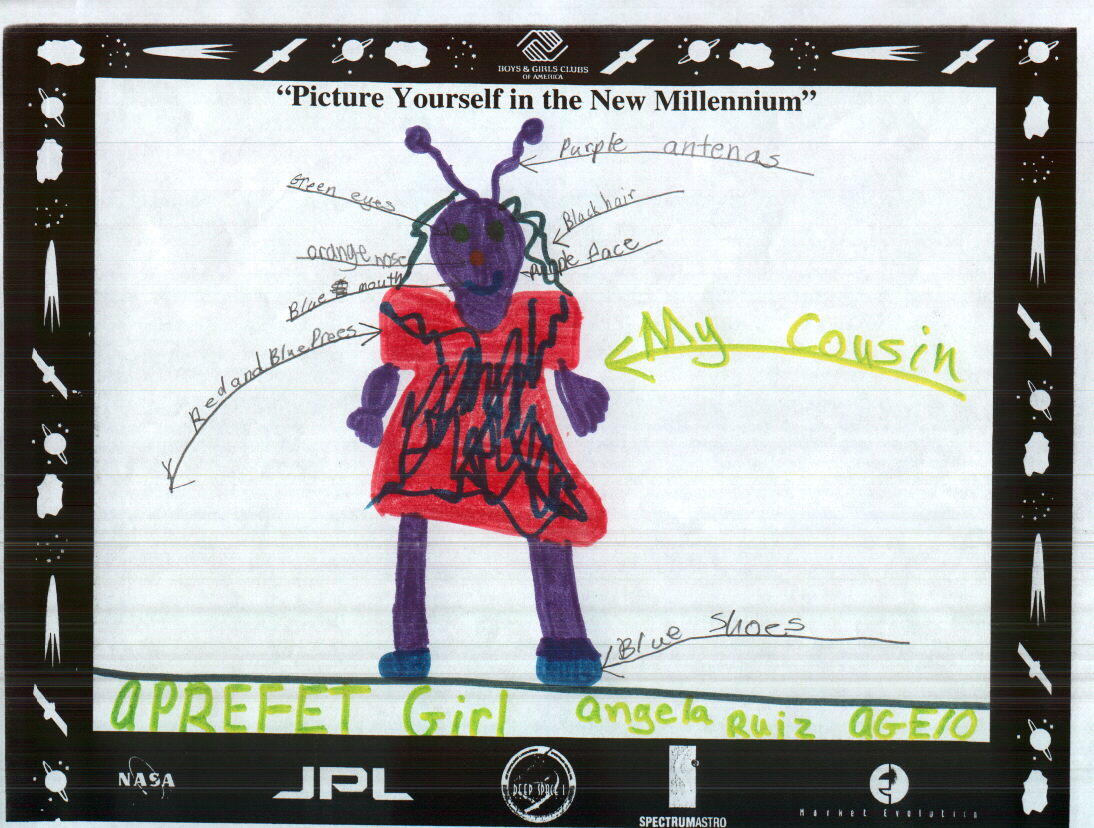 BOYS & GIRLS CLUBS
OF AMERICA
“Picture Yourself in the New Millennium”
Purple antenas
Green eyes
Black hair
orange nose
purple face
Blue mouth
Red and Blue Prees
My Cousin
Blue Shoes
aPREFET Girl angela Ruiz aGE10
NASA
JPL
DEEP SPACE 1
SPECTRUMASTRO
Market Evolution